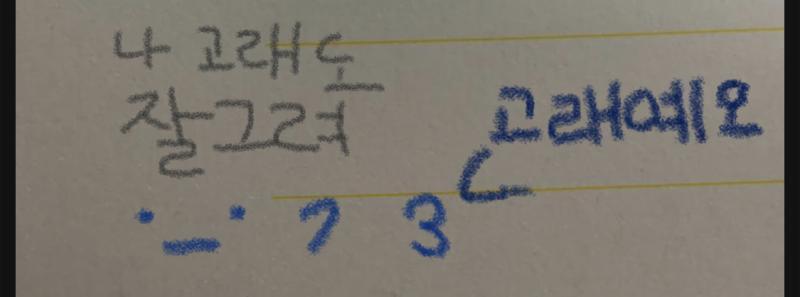 나 고래도
잘그려
고래예요
·_· 7 3